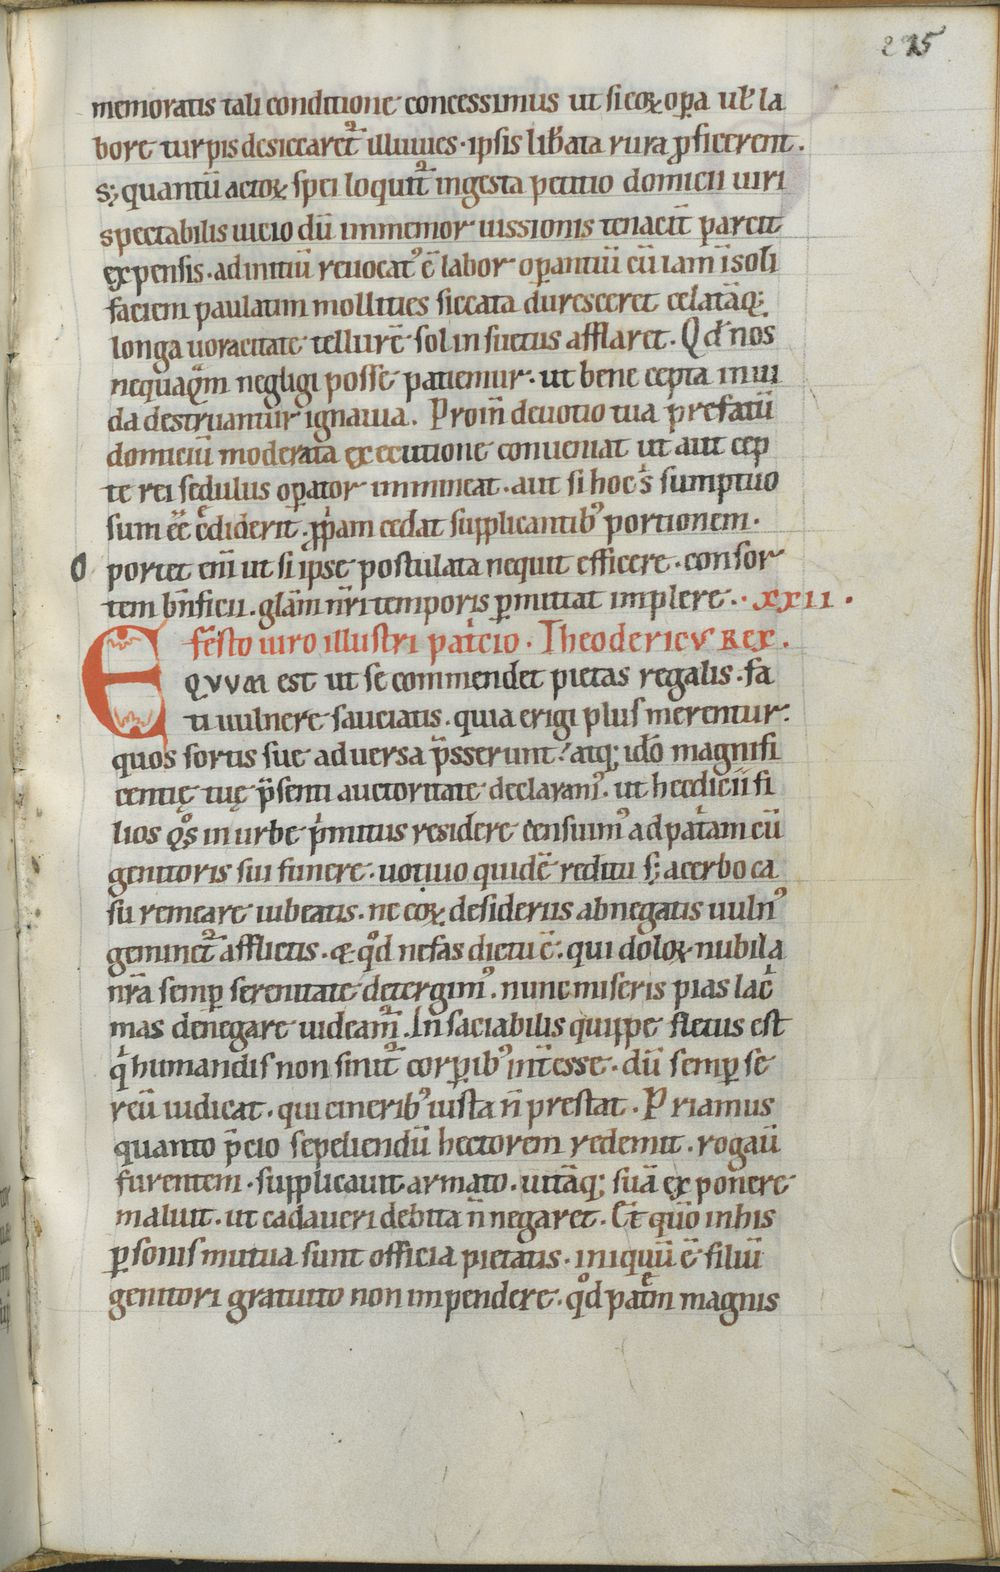 295
memoratis tali conditione concessimus ut si eoꝝ oꝑa ul̕ la
bore turpis desiccaret᷑ illuuies · ipsis lib̕ata rura ꝓficerent .
Sꝫ quantū actoꝝ spei loquit᷑ ingesta petitio domicii uiri
spectabilis uicio dū immemor iussionis tenacit̄ parcit
expensis · ad initiū reuocat᷒ ē labor oꝑantiū cū iam ī soli
faciem paulatim mollities siccata duresceret celatāqꝫ
longa uoracitate tellurē sol insuetus afflaret . Qd̕ nos
nequaq̄m negligi posse patiemur · ut bene cepta inui
da destruantur ignauia . Proin̄ deuotio tua prefatū
domiciū moderata executione conueniat ut aut cep
te rei sedulus oꝑator immineat · aut si hoc s̕ sumptuo
sum ee̅ c̄diderit · ꝓp̕am cedat supplicantib᷒ portionem ·
O portet eni̅ ut si ipse postulata nequit efficere · consor
tem bn̄ficii . glām nr̄i temporis ꝑmittat implere . · XXII ·
festo uiro illustri pat̕cio · Theodericus rex .
E QVVM est ut se commendet pietas regalis · fa
ti uulnere sauciatis . quia erigi plus merentur
quos sortis sue aduersa p̄sserunt : atqꝫ ido̅ magnifi
centię tuę p̄senti auctoritate declaram᷒ . ut hecdicii fi
lios qͦs in urbe p̕mitus residere censuim᷒ ad pat̕am cū
genitoris sui funere · uotiuo quidē reditu sꝫ acerbo ca
su remeare iubeatis . ne eoꝝ desideriis abnegatis uuln᷒
geminet᷑ afflictis . & qͦd nefas dictu ē : qui doloꝝ nubila
nr̄a semꝑ serenitate detergim᷒ . nunc miseris pias lac̕
mas denegare uideam᷑ . Insaciabilis quippe fletus est
q̕ humandis non sinit᷑ corꝑib᷒ int̄esse · dū semꝑ se
reū iudicat . qui cinerib᷒ iusta n̄ prestat . Priamus
quanto p̄cio sepeliendū hectorem redemit . rogau̅
furentem · supplicauit armato . uitāqꝫ suā exponere
maluit . ut cadaueri debita n̄ negaret . Et qn̄o in his
ꝑsonis mutua sunt officia pietatis · iniquū ē filiū
genitori gratuito non impendere · qͦd pat̄m magnis